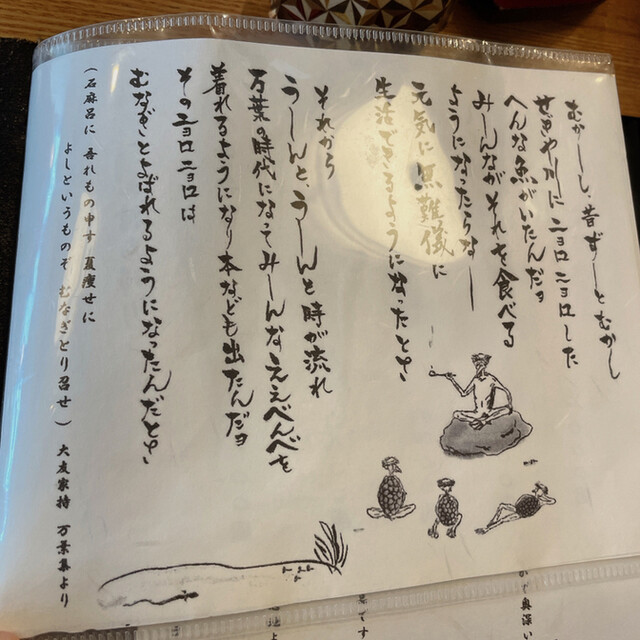 むかーし 昔ずーとむかし
せぎやかーに ニョロニョロした
へんな魚がいたんだョ
みーんながそれを食べる
ようになったらなー
元気に無難儀に
生活できるようになったとさ
それから
うーんと、うーんと時が流れ
万葉の時代になてみーんなええべんべを
着れるようになり本なども出たんだョ
そのニョロニョロは
むなぎとよばれるようになったんだとさ
(石麻呂に 吾れもの申す 夏痩せに
よしというものぞ むなぎとり召せ) 大友家持 万葉集より
て奥深い